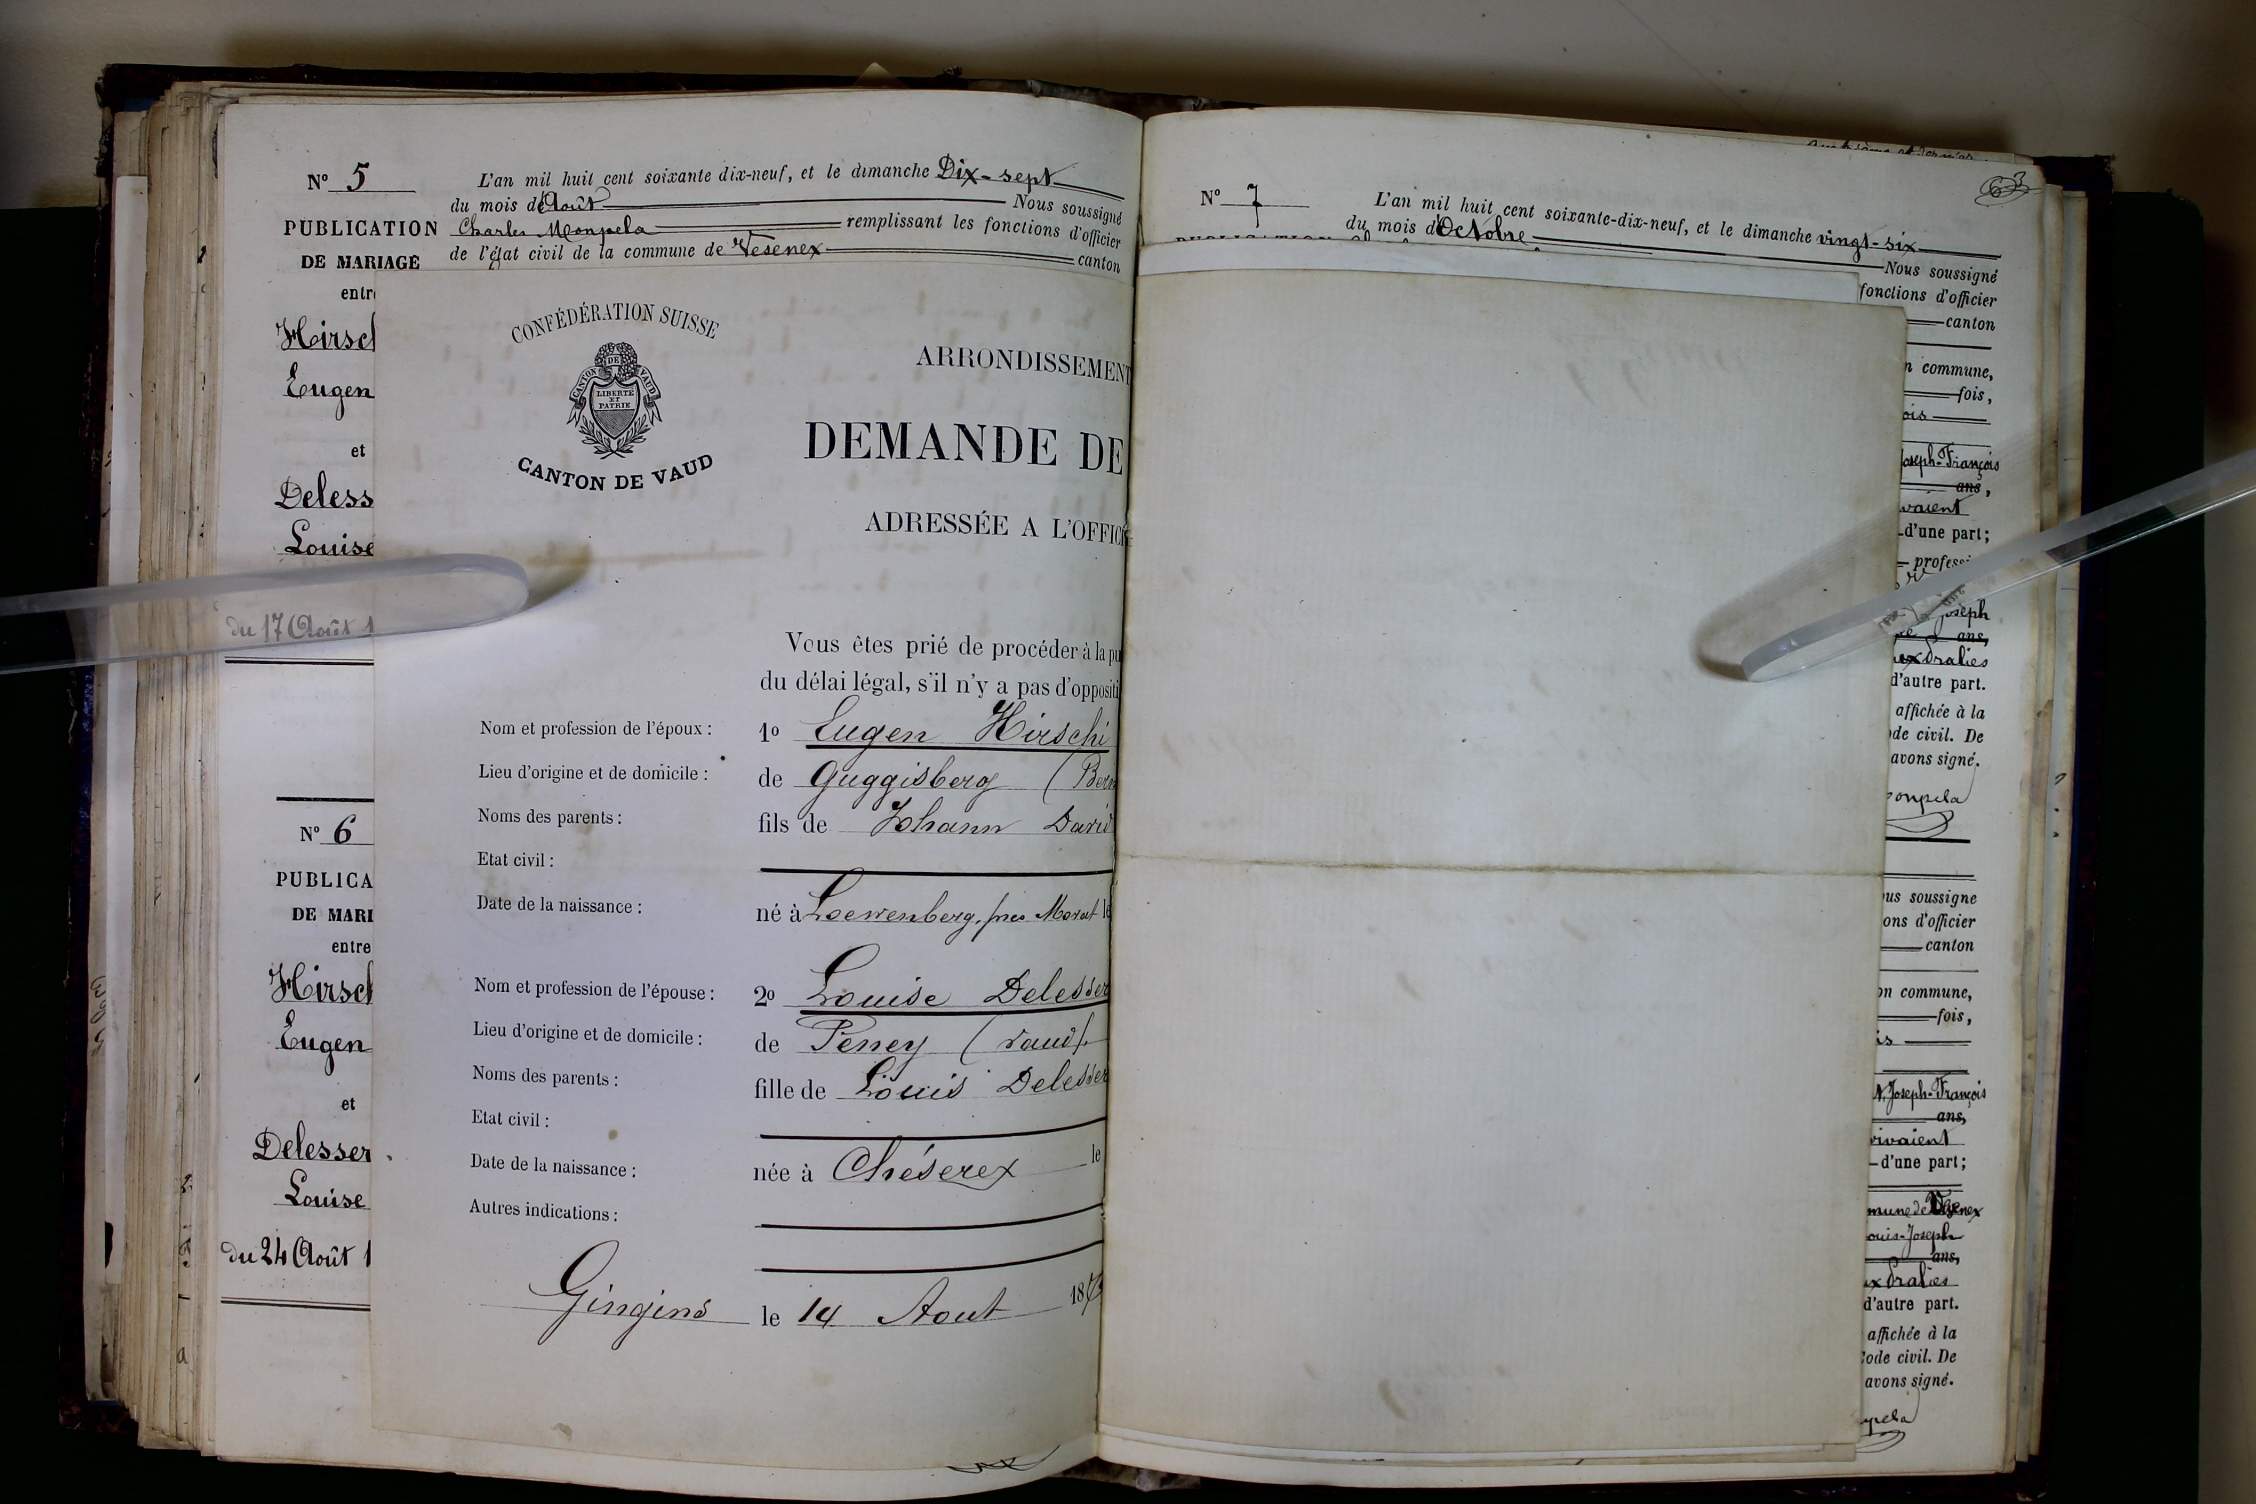 N° 5
L'an mil huit cent soixante dix-neuf, et le dimanche Dix-sept
du mois d'Août Nous soussigné
PUBLICATION
Charles Monpela remplissant les fonctions d'officier
DE MARIAGE
de l'état civil de la commune de Vesenex canton
entr
Hirsch
Eugen
et
Deless
Louise
du 17 Août 1
N° 6
PUBLICA
DE MARI
entre
Hirsch
Eugen
et
Delesser
Louise
du 24 Août 1
CONFÉDÉRATION SUISSE
CANTON DE VAUD
LIBERTÉ
ET
PATRIE
CANTON DE VAUD
ARRONDISSEMENT
DEMANDE DE
ADRESSÉE A L'OFFICI
Vous êtes prié de procéder à la pu
du délai légal, s'il n'y a pas d'oppositi
Nom et profession de l'époux : 1o Eugen Hirschi
Lieu d'origine et de domicile : de Guggisberg (Bern
Noms des parents : fils de Johann David
Etat civil :
Date de la naissance : né à Loewenberg, près Morat le
Nom et profession de l'épouse : 2o Louise Delesser
Lieu d'origine et de domicile : de Peney (Vaud).
Noms des parents : fille de Louis Delesser
Etat civil :
Date de la naissance : née à Chéserex le
Autres indications :
Gingins le 14 Aout 187
63
N° 7
L'an mil huit cent soixante-dix-neuf, et le dimanche vingt-six
du mois d'Octobre
Nous soussigné
fonctions d'officier
canton
n commune,
fois,
ois
Joseph-François
ans,
vaient
d'une part;
profess
Joseph
ans,
ux Pralies
d'autre part.
affichée à la
ode civil. De
avons signé.
onpela
us soussigne
ons d'officier
canton
on commune,
fois,
is
N, Joseph-François
ans,
vivaient
d'une part;
mune de Vesenex
ouis-Joseph
ans,
ux Pralies
d'autre part.
affichée à la
Code civil. De
avons signé.
npela